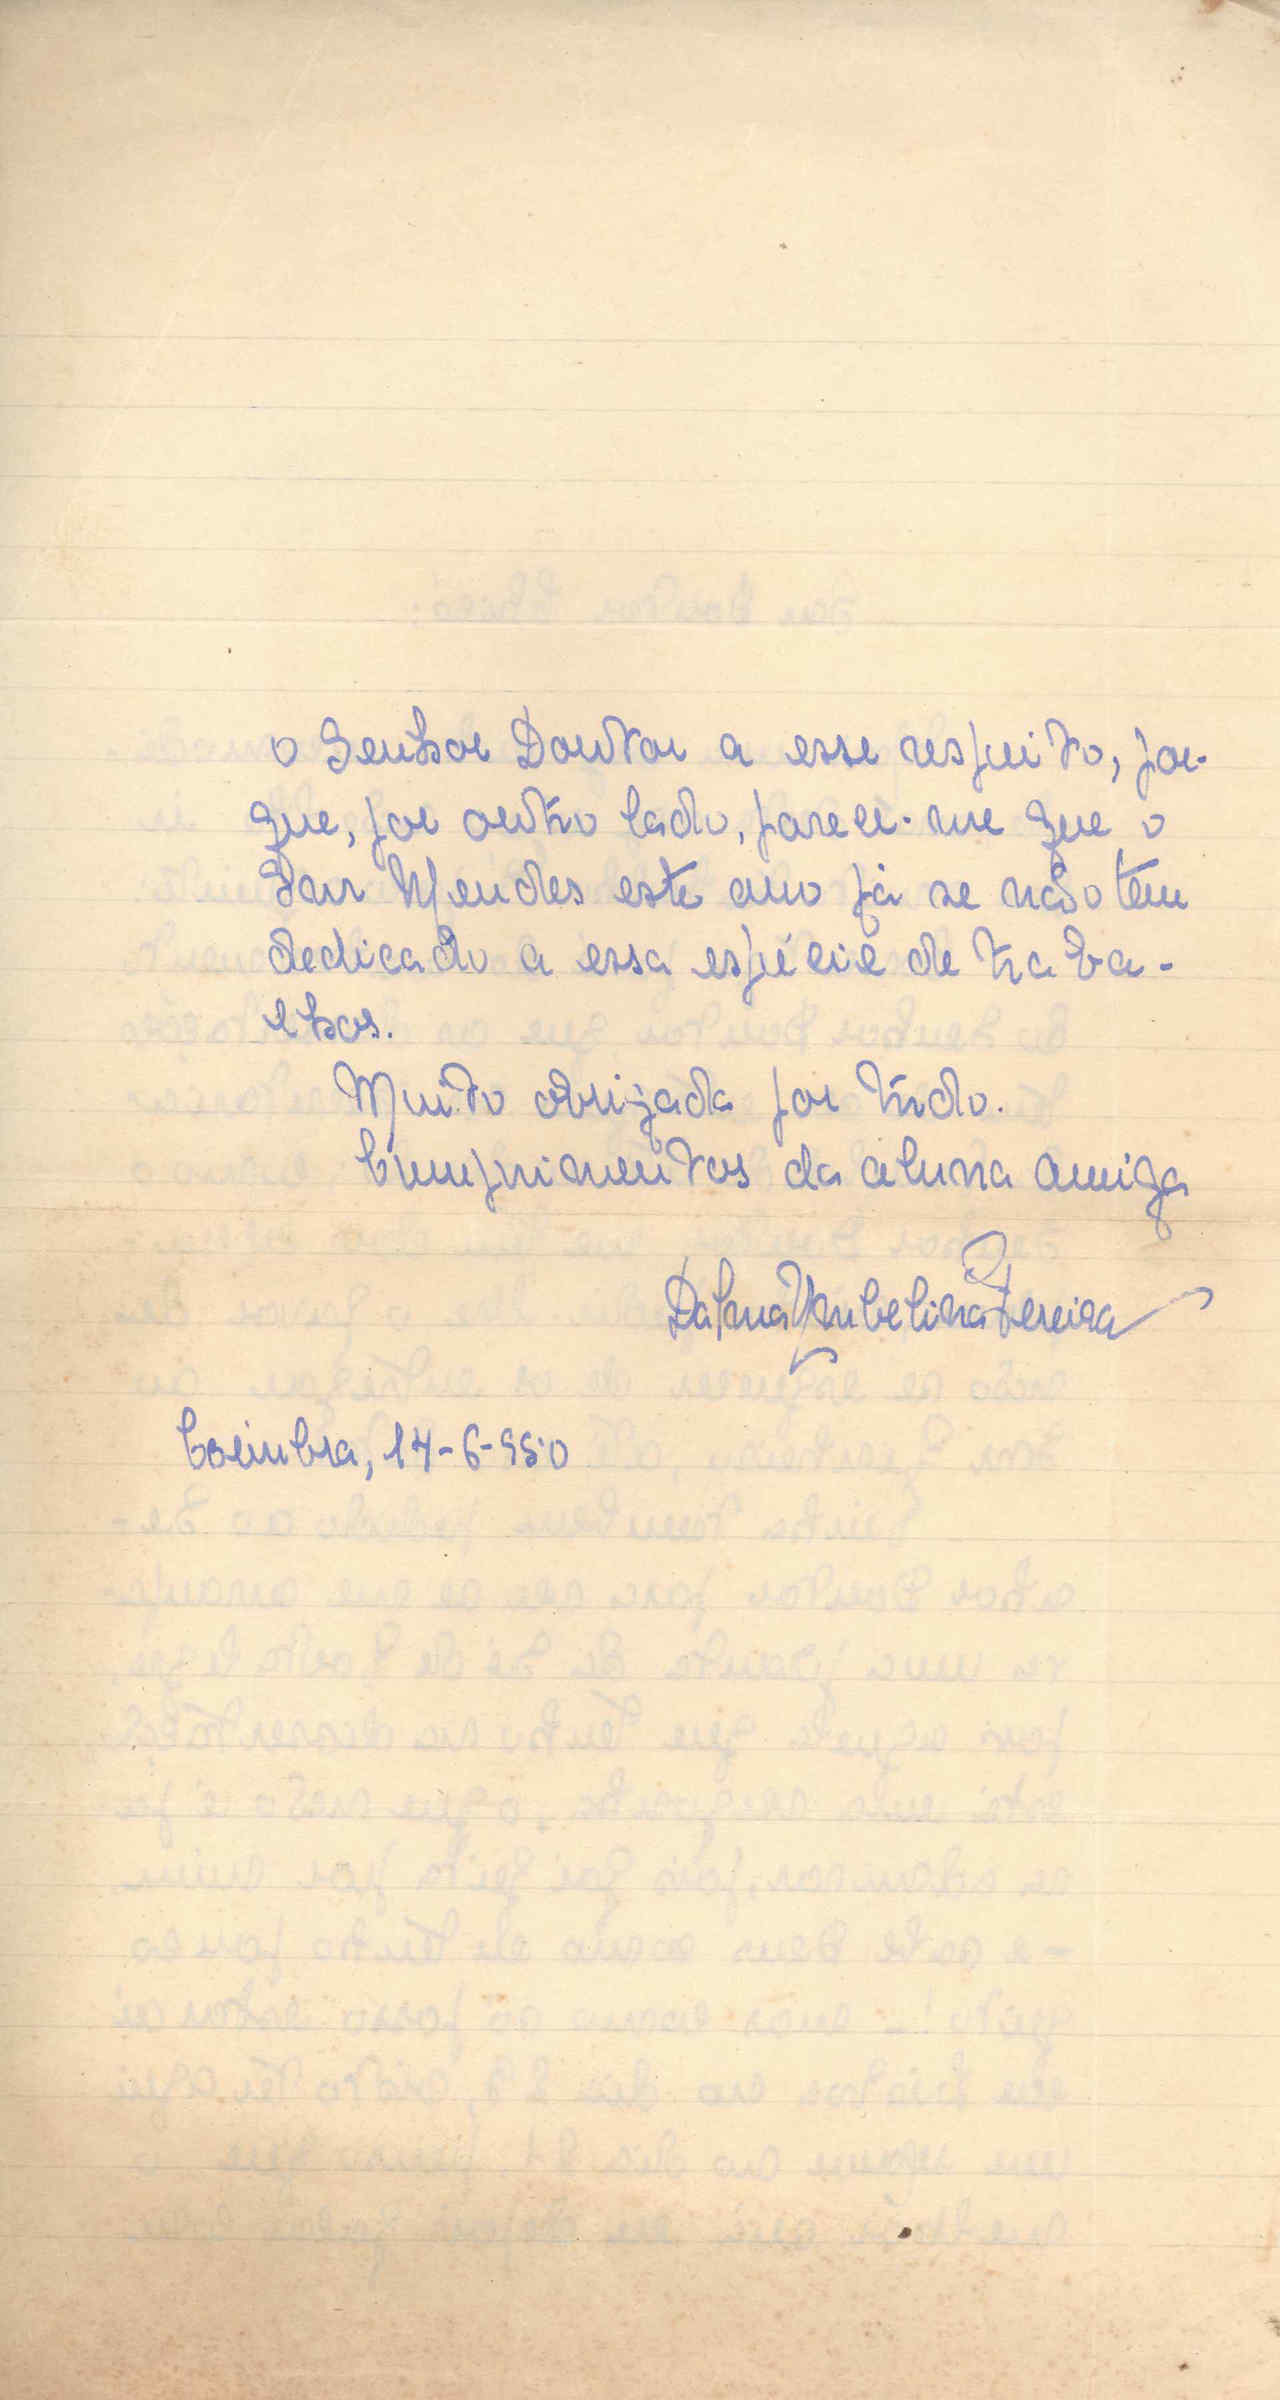 o Senhor Doutor a esse respeito, por-
que, por outro lado, parece-me que o
Snr Mendes este ano já se não tem
dedicado a essa espécie de traba-
lhos.
Muito obrigada por tudo.
Cumprimentos da aluna amiga
Dalma Umbelina Pereira
Coimbra, 14-6-950